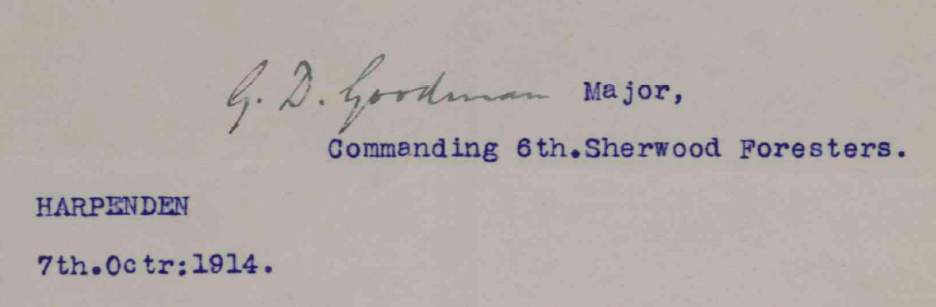 G. D. Goodman Major,
Commanding 6th.Sherwood Foresters.
HARPENDEN
7th.Octr:1914.